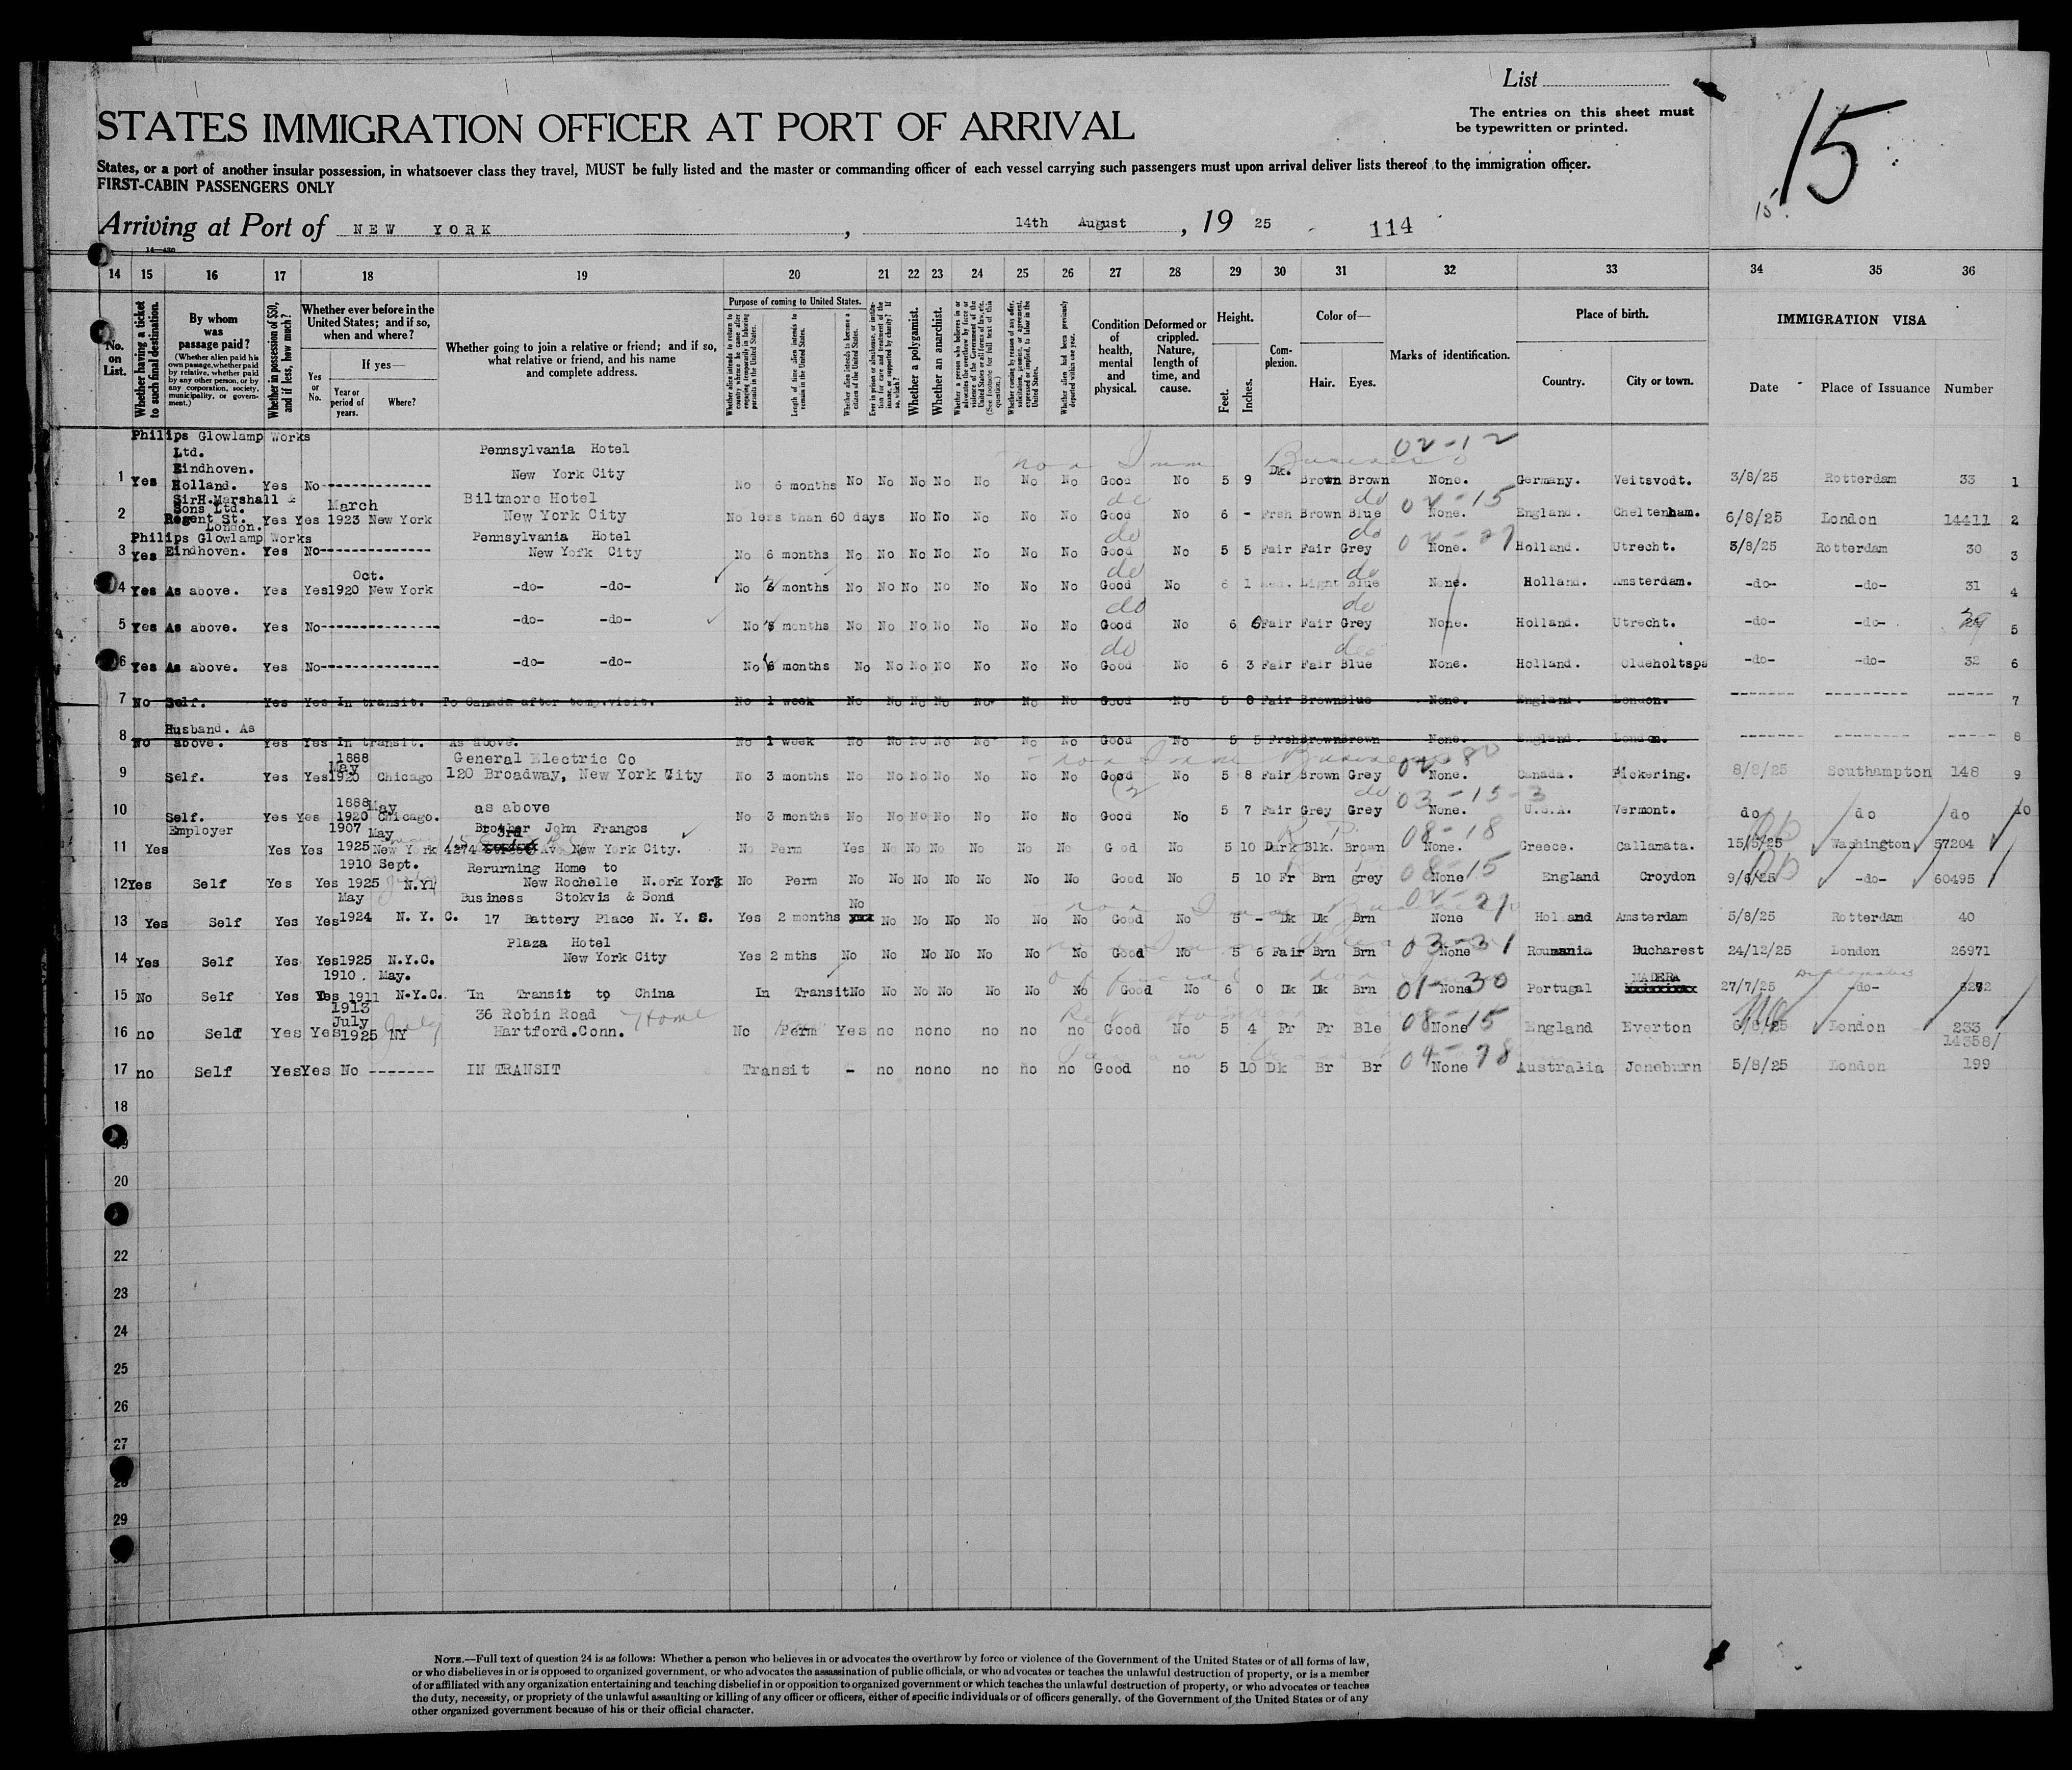 List
The entries on this sheet must
be typewritten or printed.
15
15
STATES IMMIGRATION OFFICER AT PORT OF ARRIVAL
States, or a port of another insular possession, in whatsoever class they travel, MUST be fully listed and the master or commanding officer of each vessel carrying such passengers must upon arrival deliver lists thereof to the immigration officer.
FIRST-CABIN PASSENGERS ONLY
Arriving at Port of NEW YORK, 14th August, 19 25 114
14—430
14 15 16 17 18 19 20 21 22 23 24 25 26 27 28 29 30 31 32 33 34 35 36
No. on List.
Whether having a ticket to such final destination.
By whom was passage paid?
(Whether alien paid his own passage, whether paid by relative, whether paid by any other person, or by any corporation, society, municipality, or government.)
Whether in possession of $50, and if less, how much?
Whether ever before in the United States; and if so, when and where?
Yes or No.
If yes—
Year or period of years.
Where?
Whether going to join a relative or friend; and if so, what relative or friend, and his name and complete address.
Purpose of coming to United States.
Whether alien intends to return to country whence he came after engaging temporarily in laboring pursuits in the United States.
Length of time alien intends to remain in the United States.
Whether alien intends to become a citizen of the United States.
Ever in prison or almshouse, or institution for care and treatment of the insane, or supported by charity? If so, which?
Whether a polygamist.
Whether an anarchist.
Whether a person who believes in or advocates the overthrow by force or violence of the Government of the United States or all forms of law, etc. (See footnote for full text of this question.)
Whether coming by reason of any offer, solicitation, promise, or agreement, expressed or implied, to labor in the United States.
Whether alien had been previously deported within one year.
Condition of health, mental and physical.
Deformed or crippled. Nature, length of time, and cause.
Height.
Feet.
Inches.
Complexion.
Color of—
Hair. Eyes.
Marks of identification.
Place of birth.
Country. City or town.
IMMIGRATION VISA
Date Place of Issuance Number
Philips Glowlamp Works
Ltd. Pennsylvania Hotel non Imm Business 02-12
Eindhoven. New York City Dk.
1 Yes Holland. Yes No-------------- No 6 months No No No No No No No Good No 5 9 Brown Brown None. Germany. Veitsvodt. 3/8/25 Rotterdam 33 1
SirH.Marshall & March Biltmore Hotel do do 02-15
Sons Ltd.
2 Regent St. Yes Yes 1923 New York New York City No less than 60 days No No No No No Good No 6 - Frsh Brown Blue None. England. Cheltenham. 6/8/25 London 14411 2
London.
Philips Glowlamp Works Pennsylvania Hotel do do
3 Yes Eindhoven. Yes No-------------- New York City No 6 months No No No No No No No Good No 5 5 Fair Fair Grey None. Holland. Utrecht. 3/8/25 Rotterdam 30 3
Oct. do do
4 Yes As above. Yes Yes1920 New York -do- -do- No 6 months No No No No No No No Good No 6 1 Light Blue None. Holland. Amsterdam. -do- -do- 31 4
do do
5 Yes As above. Yes No-------------- -do- -do- No months No No No No No No No Good No 6 6 Fair Fair Grey None. Holland. Utrecht. -do- -do- 5
do
6 Yes As above. Yes No-------------- -do- -do- No 6 months No No No No No No No Good No 6 3 Fair Fair Blue None. Holland. Oldeholtspa -do- -do- 32 6
7 No Self. Yes Yes In transit. To Canada after temp.visit. No 1 week No No No No No No No Good No 5 8 Fair BrownBlue None. England. London. -------- --------- ----- 7
Husband. As
8 No above. Yes Yes In transit. As above. No 1 week No No No No No No No Good No 5 5 FrshBrownBrown None. England. London. -------- --------- ----- 8
1888 General Electric Co non Imm Business
May
9 Self. Yes Yes1920 Chicago 120 Broadway, New York City No 3 months No No No No No No No Good No 5 8 Fair Brown Grey None. Canada. Pickering. 8/8/25 Southampton 148 9
1888 May as above do 03-15-3
10 Self. Yes Yes 1920 Chicago. No 3 months No No No No No No No Good No 5 7 Fair Grey Grey None. U.S.A. Vermont. do do do 10
Employer 1907 May Brother John Frangos 08-18
3rd
11 Yes Yes Yes 1925 New York 4274 Ave New York City. No Perm Yes No No No No No No Good No 5 10 Dark Blk. Brown None. Greece. Callamata. 15/5/25 Washington 57204
1910 Sept. Rerurning Home to 08-15
12 Yes Self Yes Yes 1925 N.Y. New Rochelle N.ork York No Perm No No No No No No No Good No 5 10 Fr Brn grey None England Croydon 9/6/25 -do- 60495
May Business Stokvis & Sond No non Imm Business
13 Yes Self Yes Yes 1924 N. Y. C. 17 Battery Place N. Y. C. Yes 2 months No No No No No No Good No 5 - Dk Dk Brn None Holland Amsterdam 5/8/25 Rotterdam 40
Plaza Hotel 03-31
14 Yes Self Yes Yes1925 N.Y.C. New York City Yes 2 mths No No No No No No No Good No 5 6 Fair Brn Brn None Roumania Bucharest 24/12/25 London 26971
1910. May. official 01-30 MADERA Diplomatic
15 No Self Yes Yes 1911 N.Y.C. In Transit to China In Transit No No No No No No No Good No 6 0 Dk Dk Brn None Portugal 27/7/25 -do-
1913 36 Robin Road Home 08-15
July July
16 no Seld Yes Yes 1925 NY Hartford.Conn. No Perm Yes no no no no no no Good No 5 4 Fr Fr Ble None England Everton 6/8/25 London 233
14358/
17 no Self Yes Yes No ------- IN TRANSIT Transit - no no no no no no Good no 5 10 Dk Br Br None Australia Joneburn 5/8/25 London 199
18
20
22
23
24
25
26
27
29
NOTE.—Full text of question 24 is as follows: Whether a person who believes in or advocates the overthrow by force or violence of the Government of the United States or of all forms of law,
or who disbelieves in or is opposed to organized government, or who advocates the assassination of public officials, or who advocates or teaches the unlawful destruction of property, or is a member
of or affiliated with any organization entertaining and teaching disbelief in or opposition to organized government or which teaches the unlawful destruction of property, or who advocates or teaches
the duty, necessity, or propriety of the unlawful assaulting or killing of any officer or officers, either of specific individuals or of officers generally, of the Government of the United States or of any
other organized government because of his or their official character.